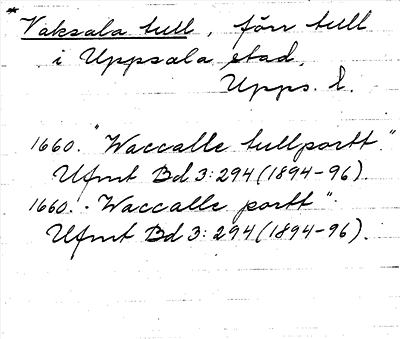 * Vaksala tull, förr tull
i Uppsala stad,
Upps. l.
1660. "Waccalle tullportt."
Ufmt Bd 3:294 (1894-96).
1660. "Waccalle portt".
Ufmt Bd 3:294 (1894-96).